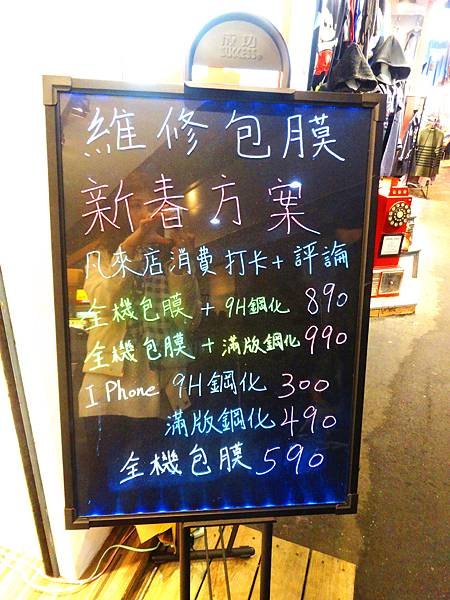 成功
SUCCESS
維修包膜
新春方案
凡來店消費打卡+評論
全機包膜+9H鋼化 890
全機包膜+滿版鋼化 990
I Phone 9H鋼化 300
滿版鋼化 490
全機包膜 590